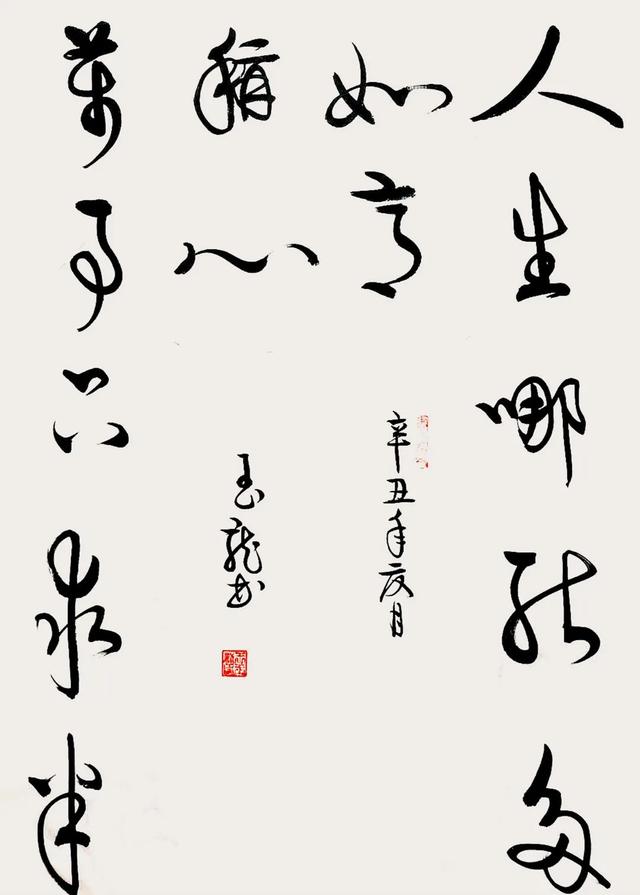 人生哪能多
如意
萬事只求半
稱心
辛丑年夏月
玉龍书